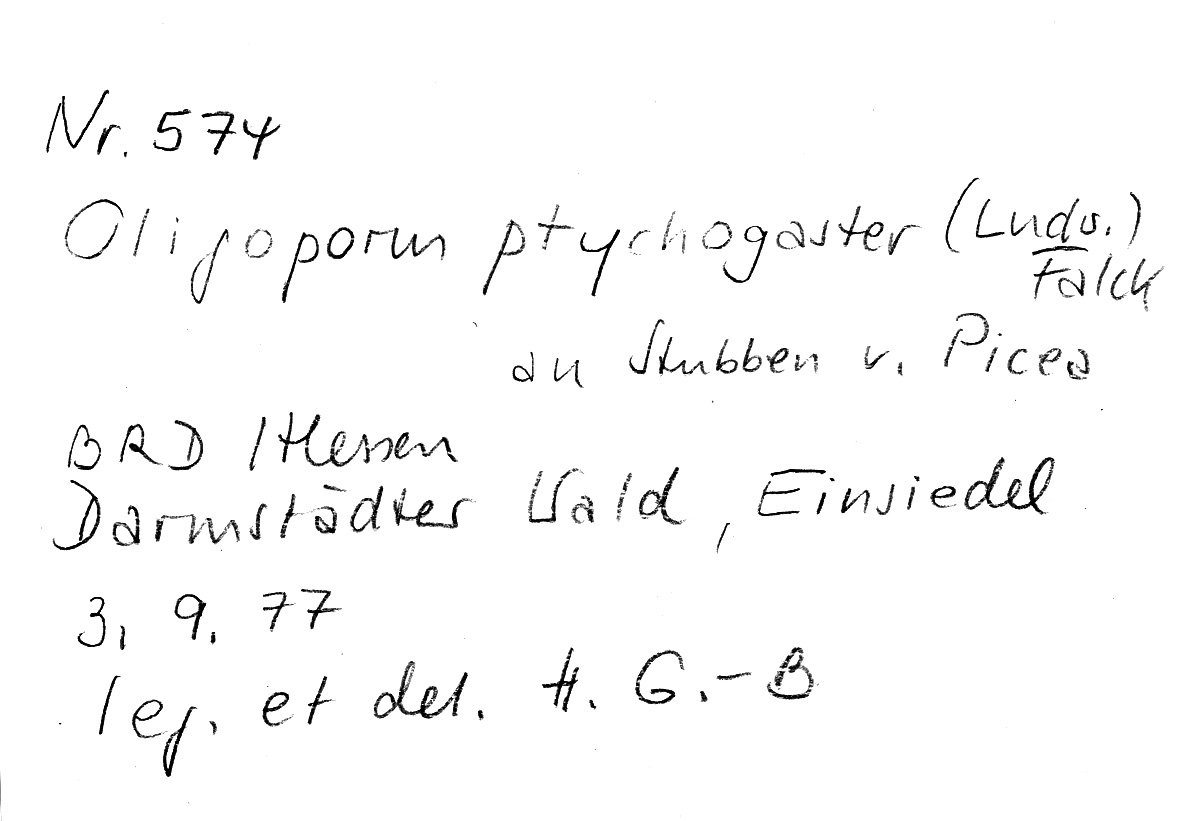 Nr. 574
Oligoporus ptychogaster (Ludw.)
Falck
an Stubben v. Picea
BRD / Hessen
Darmstädter Wald, Einsiedel
3. 9. 77
leg. et det. H. G.-B